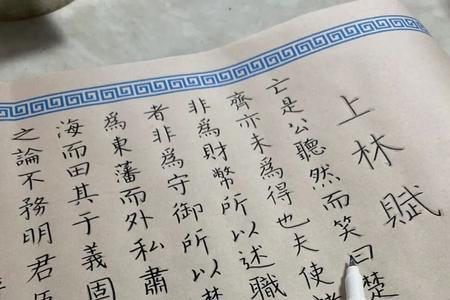 上林賦
亡是公聽然而笑曰楚
齊亦未為得也夫使
非為財幣所以述職
者非為守御所以禁
為東藩而外私肅
海而田其于義固
之論不務明君